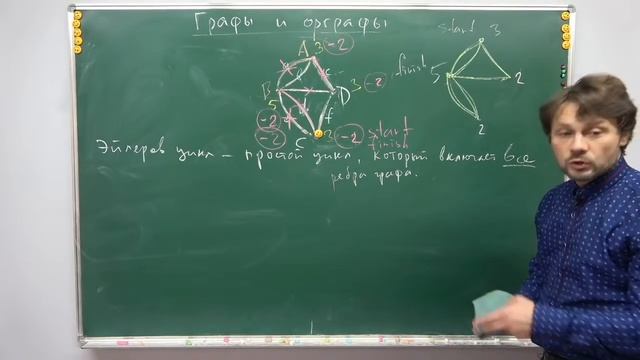 Графы и орграфы
start 3
A 3 -2
finish
5
2
B
5
D 3 -2
-2
-2
C
3 -2 start
finish
f
2
Эйлеров цикл – простой цикл, который включает все
ребра графа.